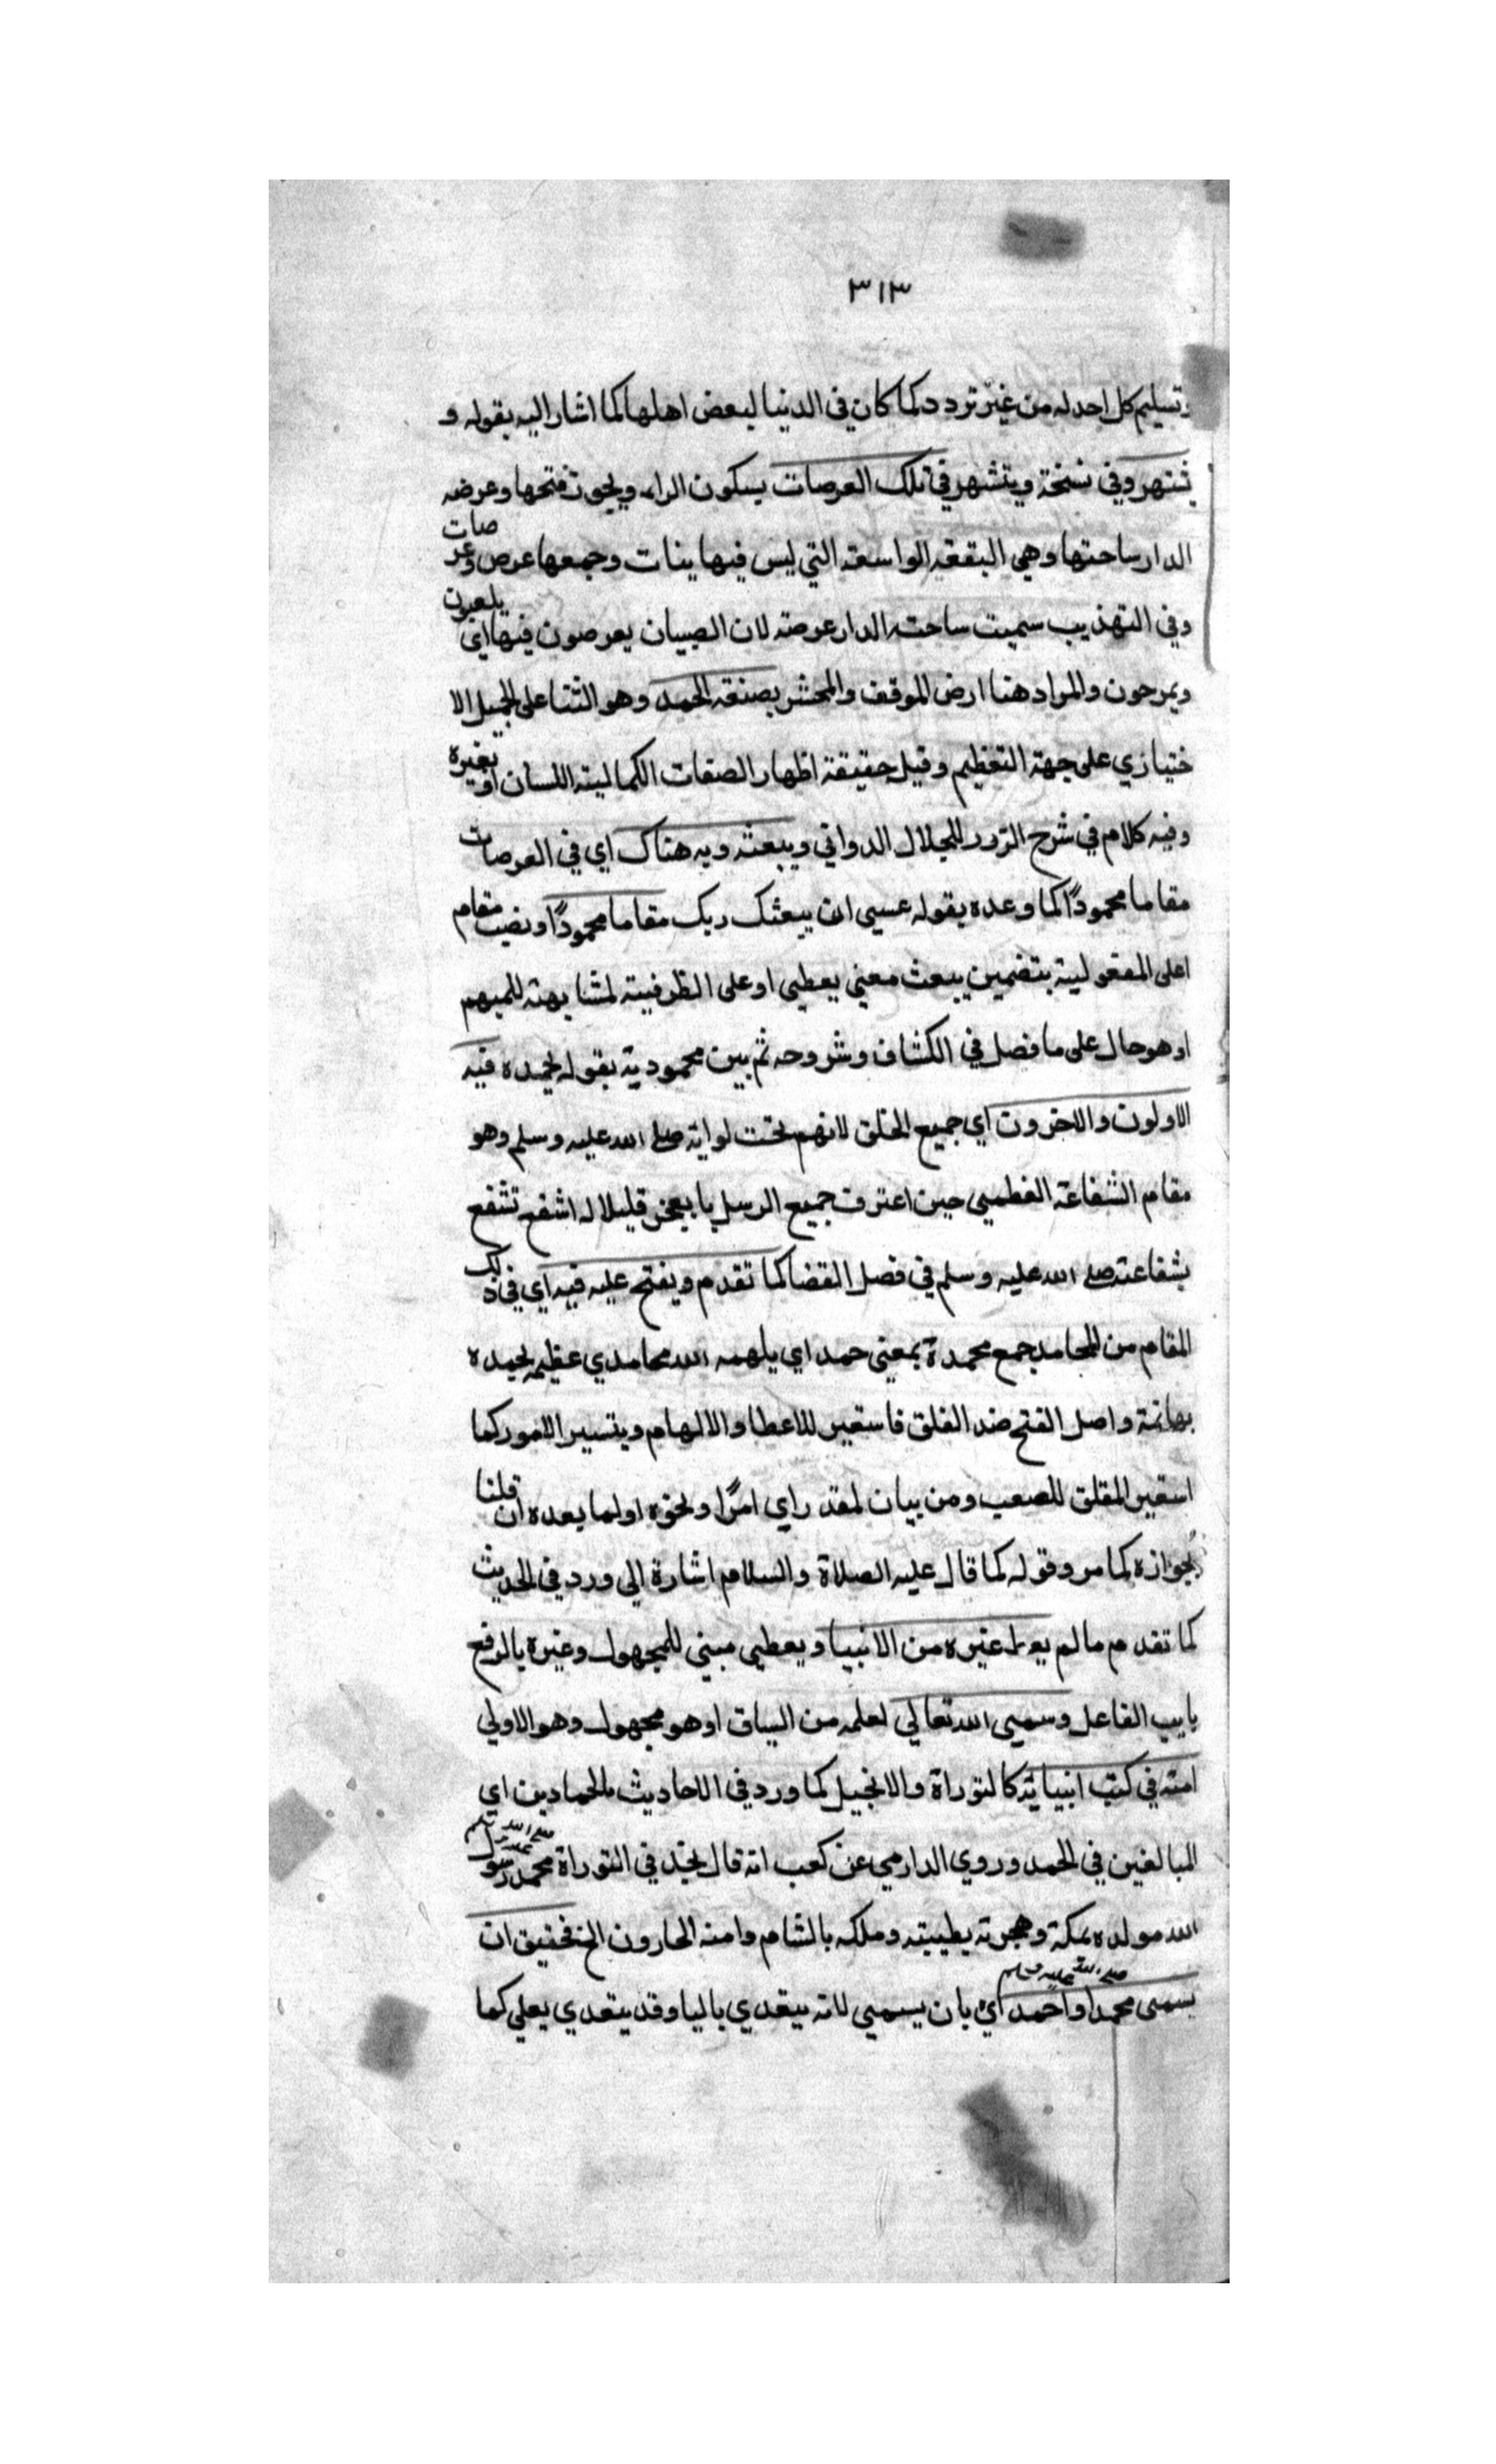 ٣١٣
وتسليم كل احد له من غير تردد كما كان في الدنيا لبعض اهلها كما اشار اليه بقوله و
يشتهر وفي نسخة ويتشهر في تلك العرصات بسكون الراء ويجوز فتحها وعرضه
الدار ساحتها وهي البقعة الواسعة التي ليس فيها بنات وجمعها عرص وعرصات
وفي التهذيب سميت ساحة الدار عرصة لان الصبيان يعرصون فيها اي يلعبون
ويمرحون والمراد هنا ارض الموقف والمحشر بصنعة الحمد وهو الثنا على الجميل الا
ختيازي على جهة التعظيم وقيل حقيقة اظهار الصفات الكمالية اللسان او بغيره
وفيه كلام في شرح الزور للجلال الدواني ويبعثه ربه هناك اي في العرصات
مقاما محمودًا كما وعده بقوله عسى ان يبعثك ربك مقاما محمودًا ونصب مقام
اعلى المفعولية بتضمين يبعث معني يعطي او على الظرفية لمشابهته للمبهم
او هو حال على ما فصل في الكشاف وشروحه ثم بين محمودية بقوله يحمده فيه
الاولون والاخرون اي جميع الخلق لانهم تحت لوايه صلى الله عليه وسلم وهو
مقام الشفاعة العظمي حين اعترف جميع الرسل بالعجز قليلا له اشفع تشفع
بشفاعته صلى الله عليه وسلم في فصل القضا كما تقدم ويفتح عليه فيه اي في ذلك
المقام من المحامد جمع محمدة بمعني حمد اي يلهمه الله محامدي عظيمه يحمده
بهاثمة واصل الفتح ضد الغلق فاستعير للاعطا والالهام ويتسير الامور كما
استعير المقلق للصعب ومن بيان لمقدر اي امرًا ونحوه اولما بعده ان قلنا
بجوازه كما مر وقوله كما قال عليه الصلاة والسلام اشارة الي ورد في الحديث
كما تقدم ما لم يعط غيره من الانبيا ويعطي مبني للمجهول وغيره بالرفع
نايب الفاعل وسمي الله تعالي لعلمه من السياق او هو مجهول وهو الاولي
امته في كتب انبيائه كالتوراة والانجيل كما ورد في الاحاديث بالحمادين اي
المبالغين في الحمد وروي الدارمي عن كعب انه قال نجد في التوراة محمد رسول صلى الله عليه وسلم
الله مولده بمكة وهجرته بطيبته وملكه بالشام وامته الحارون الخ فحقيق ان
يسمى محمدا واحمد صلى الله عليه وسلم اي بان يسمي لانه يتعدي باليا وقد يتعدي بعلي كما